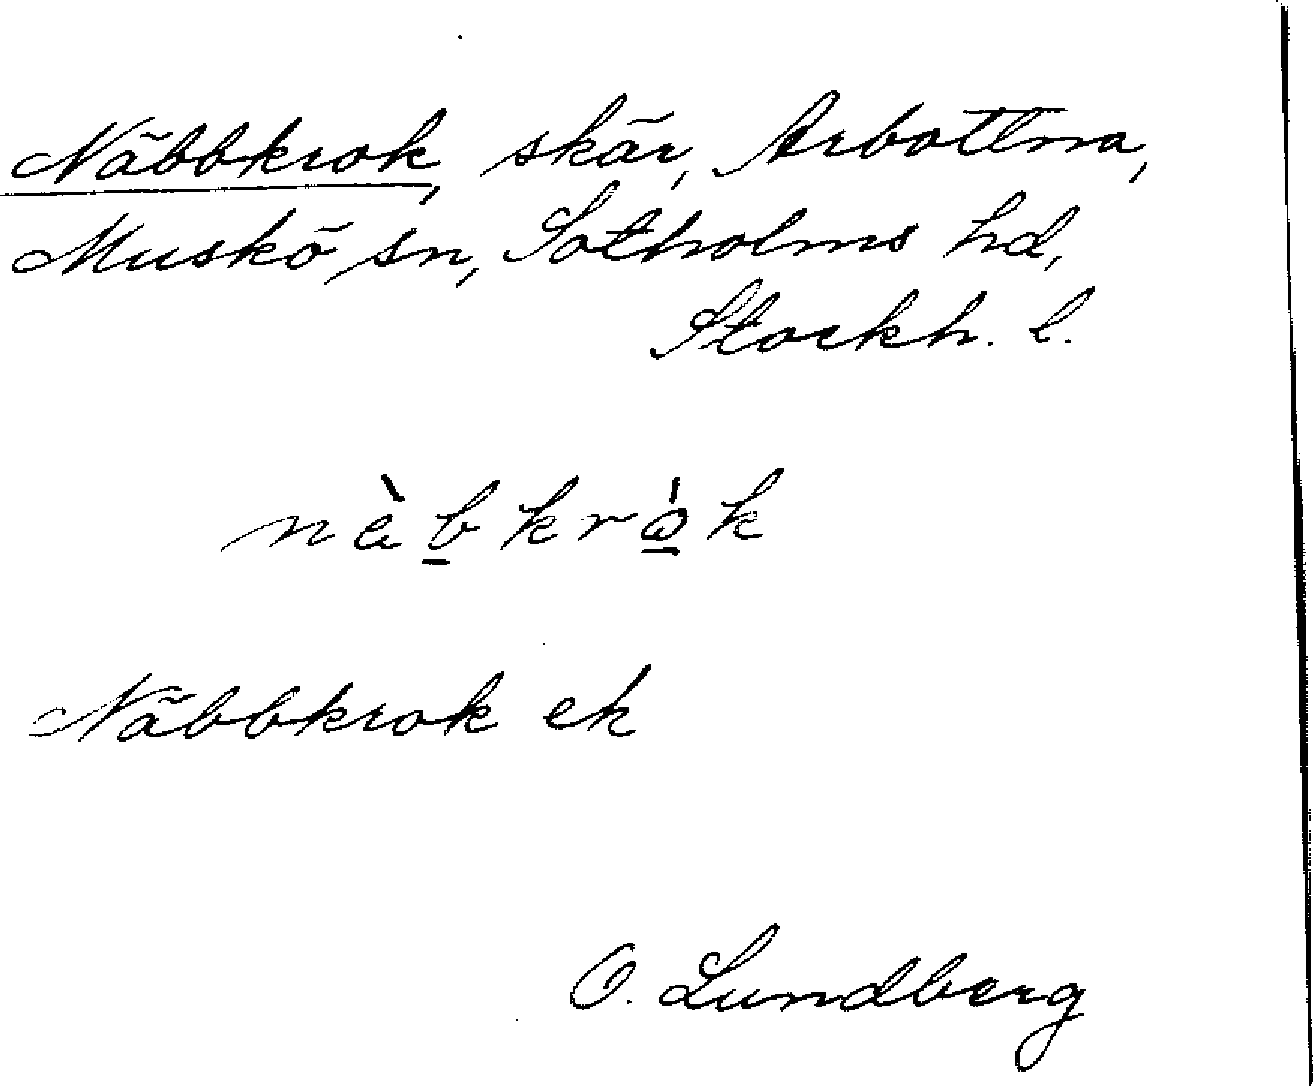 Näbbkrok, skär, Arbottna,
Muskö sn, Sotholms hd,
Stockh. l.
nὲb̲krò̲k
Näbbkrok ek
O. Lundberg